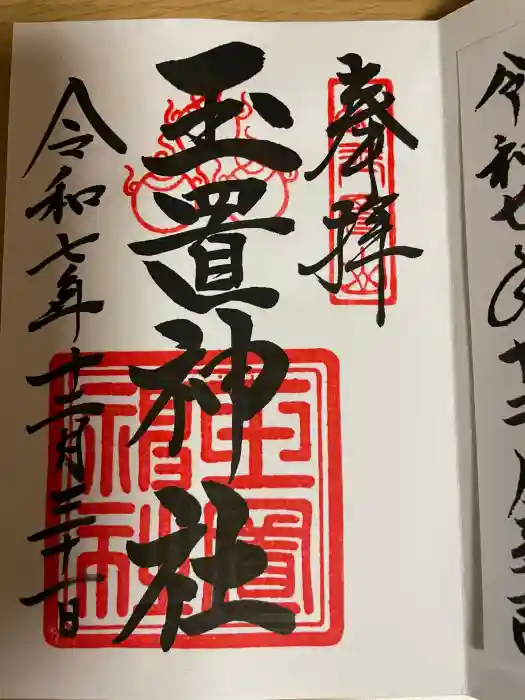 奉拝
玉置神社
令和七年十二月三十一日
玉置神社
令和七年十二月三十一日